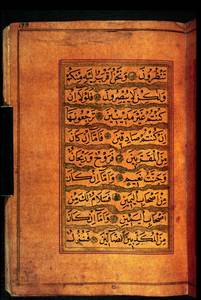 تَنْظُرُونَ وَنَحْنُ أَقْرَبُ إِلَيْهِ مِنْكُمْ
وَلَٰكِنْ لَا تُبْصِرُونَ فَلَوْلَا إِنْ
كُنْتُمْ غَيْرَ مَدِينِينَ تَرْجِعُونَهَا
إِنْ كُنْتُمْ صَادِقِينَ فَأَمَّا إِنْ كَانَ
مِنَ الْمُقَرَّبِينَ فَرَوْحٌ وَرَيْحَانٌ
وَجَنَّتُ نَعِيمٍ وَأَمَّا إِنْ كَانَ
مِنْ أَصْحَابِ الْيَمِينِ فَسَلَامٌ لَكَ مِنْ
أَصْحَابِ الْيَمِينِ وَأَمَّا إِنْ كَانَ
مِنَ الْمُكَذِّبِينَ الضَّالِّينَ فَنُزُلٌ